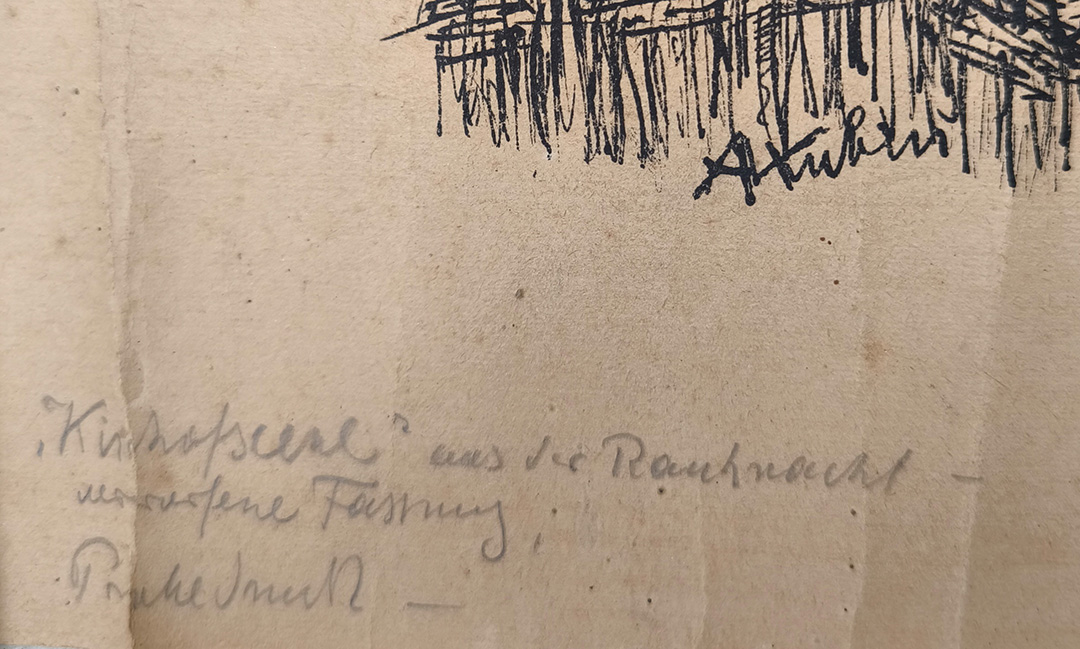 AKubin
„Kirchhofscene“ aus der Rauhnacht –
verworfene Fassung,
Probedruck –